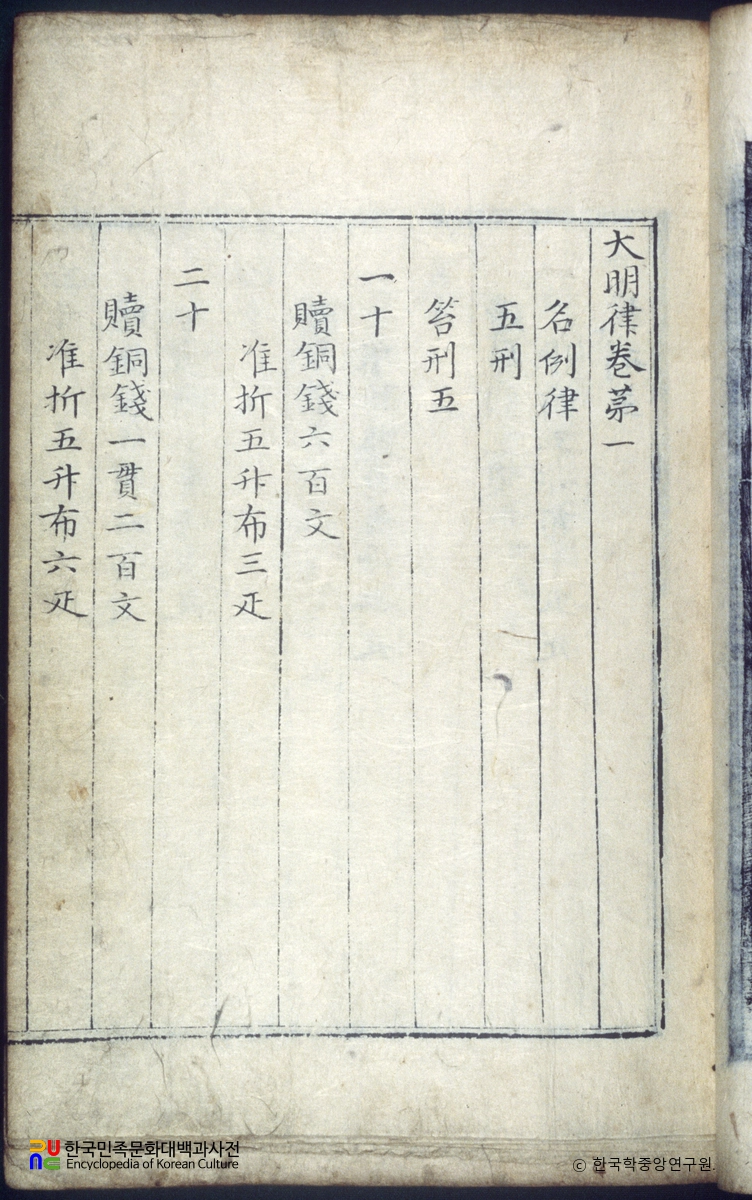 大明律卷苐一
名例律
五刑
笞刑五
一十
贖銅錢六百文
准折五升布三疋
二十
贖銅錢一貫二百文
准折五升布六疋
한국민족문화대백과사전
Encyclopedia of Korean Culture
© 한국학중앙연구원.